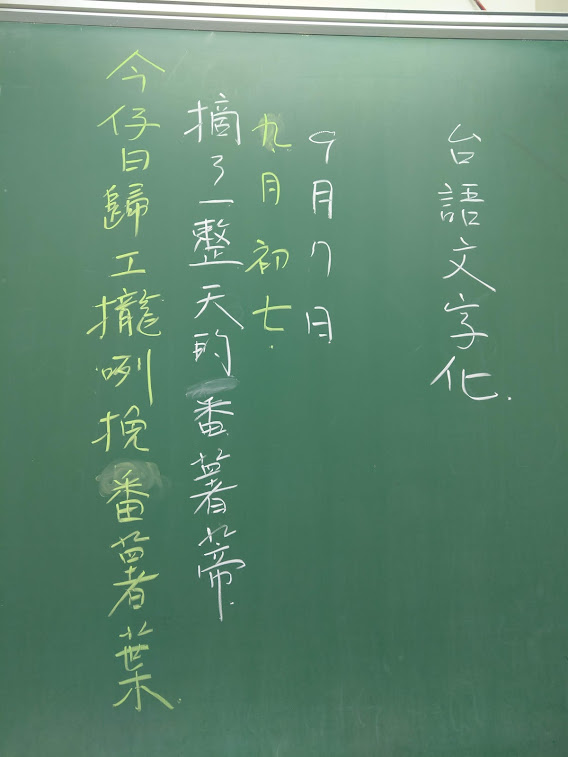 台語文字化.
9月7日
九月初七.
摘了一整天的番薯蒂.
今仔日歸工攏咧挽番薯葉.